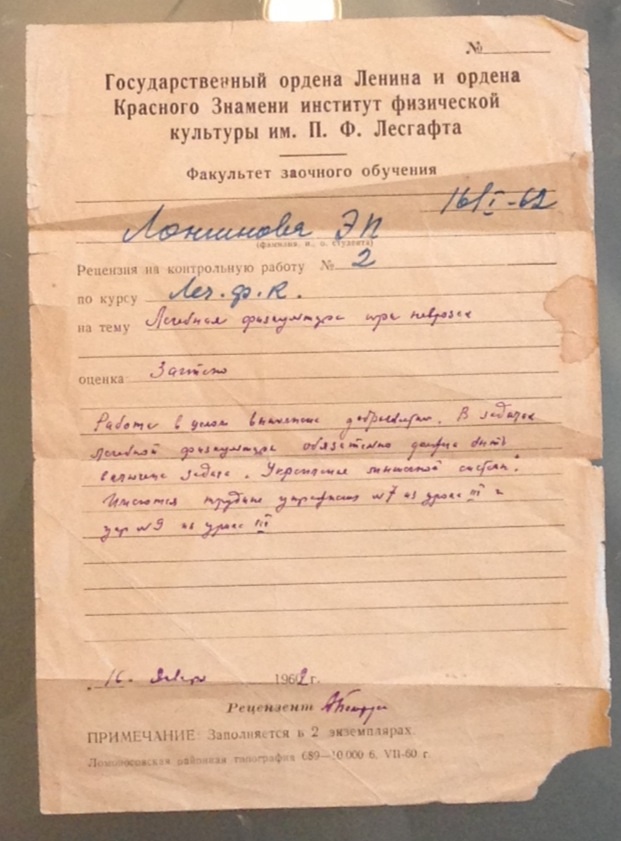 №
Государственный ордена Ленина и ордена
Красного Знамени институт физической
культуры им. П. Ф. Лесгафта
Факультет заочного обучения
16/I-62
Лонгинова Э П
(фамилия, и., о. студента)
Рецензия на контрольную работу № 2
по курсу Леч. ф. к.
на тему Лечебная физкультура при неврозах
оценка Зачтено
Работа в целом выполнена добросовестно. В задачах
лечебной физкультуры обязательно должна быть
задача "Укрепление системы".
Имеются трудные упражнения №7 из урока III и
упр №9 из урока III
16 Января 1962 г.
Рецензент
ПРИМЕЧАНИЕ: Заполняется в 2 экземплярах.
Ломоносовская районная типография 689—10.000 6. VII-60 г.